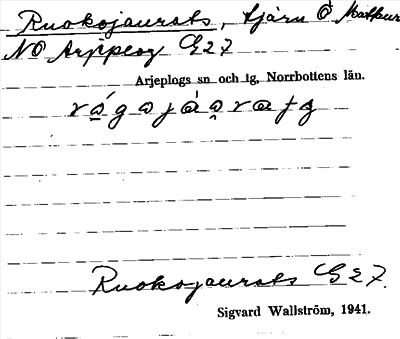 Ruokojaurats, tjärn Ö Mattaur
NO Arjeplog G27
Arjeplogs sn och tg, Norrbottens län.
Ruokojaurats G27.
Sigvard Wallström, 1941.